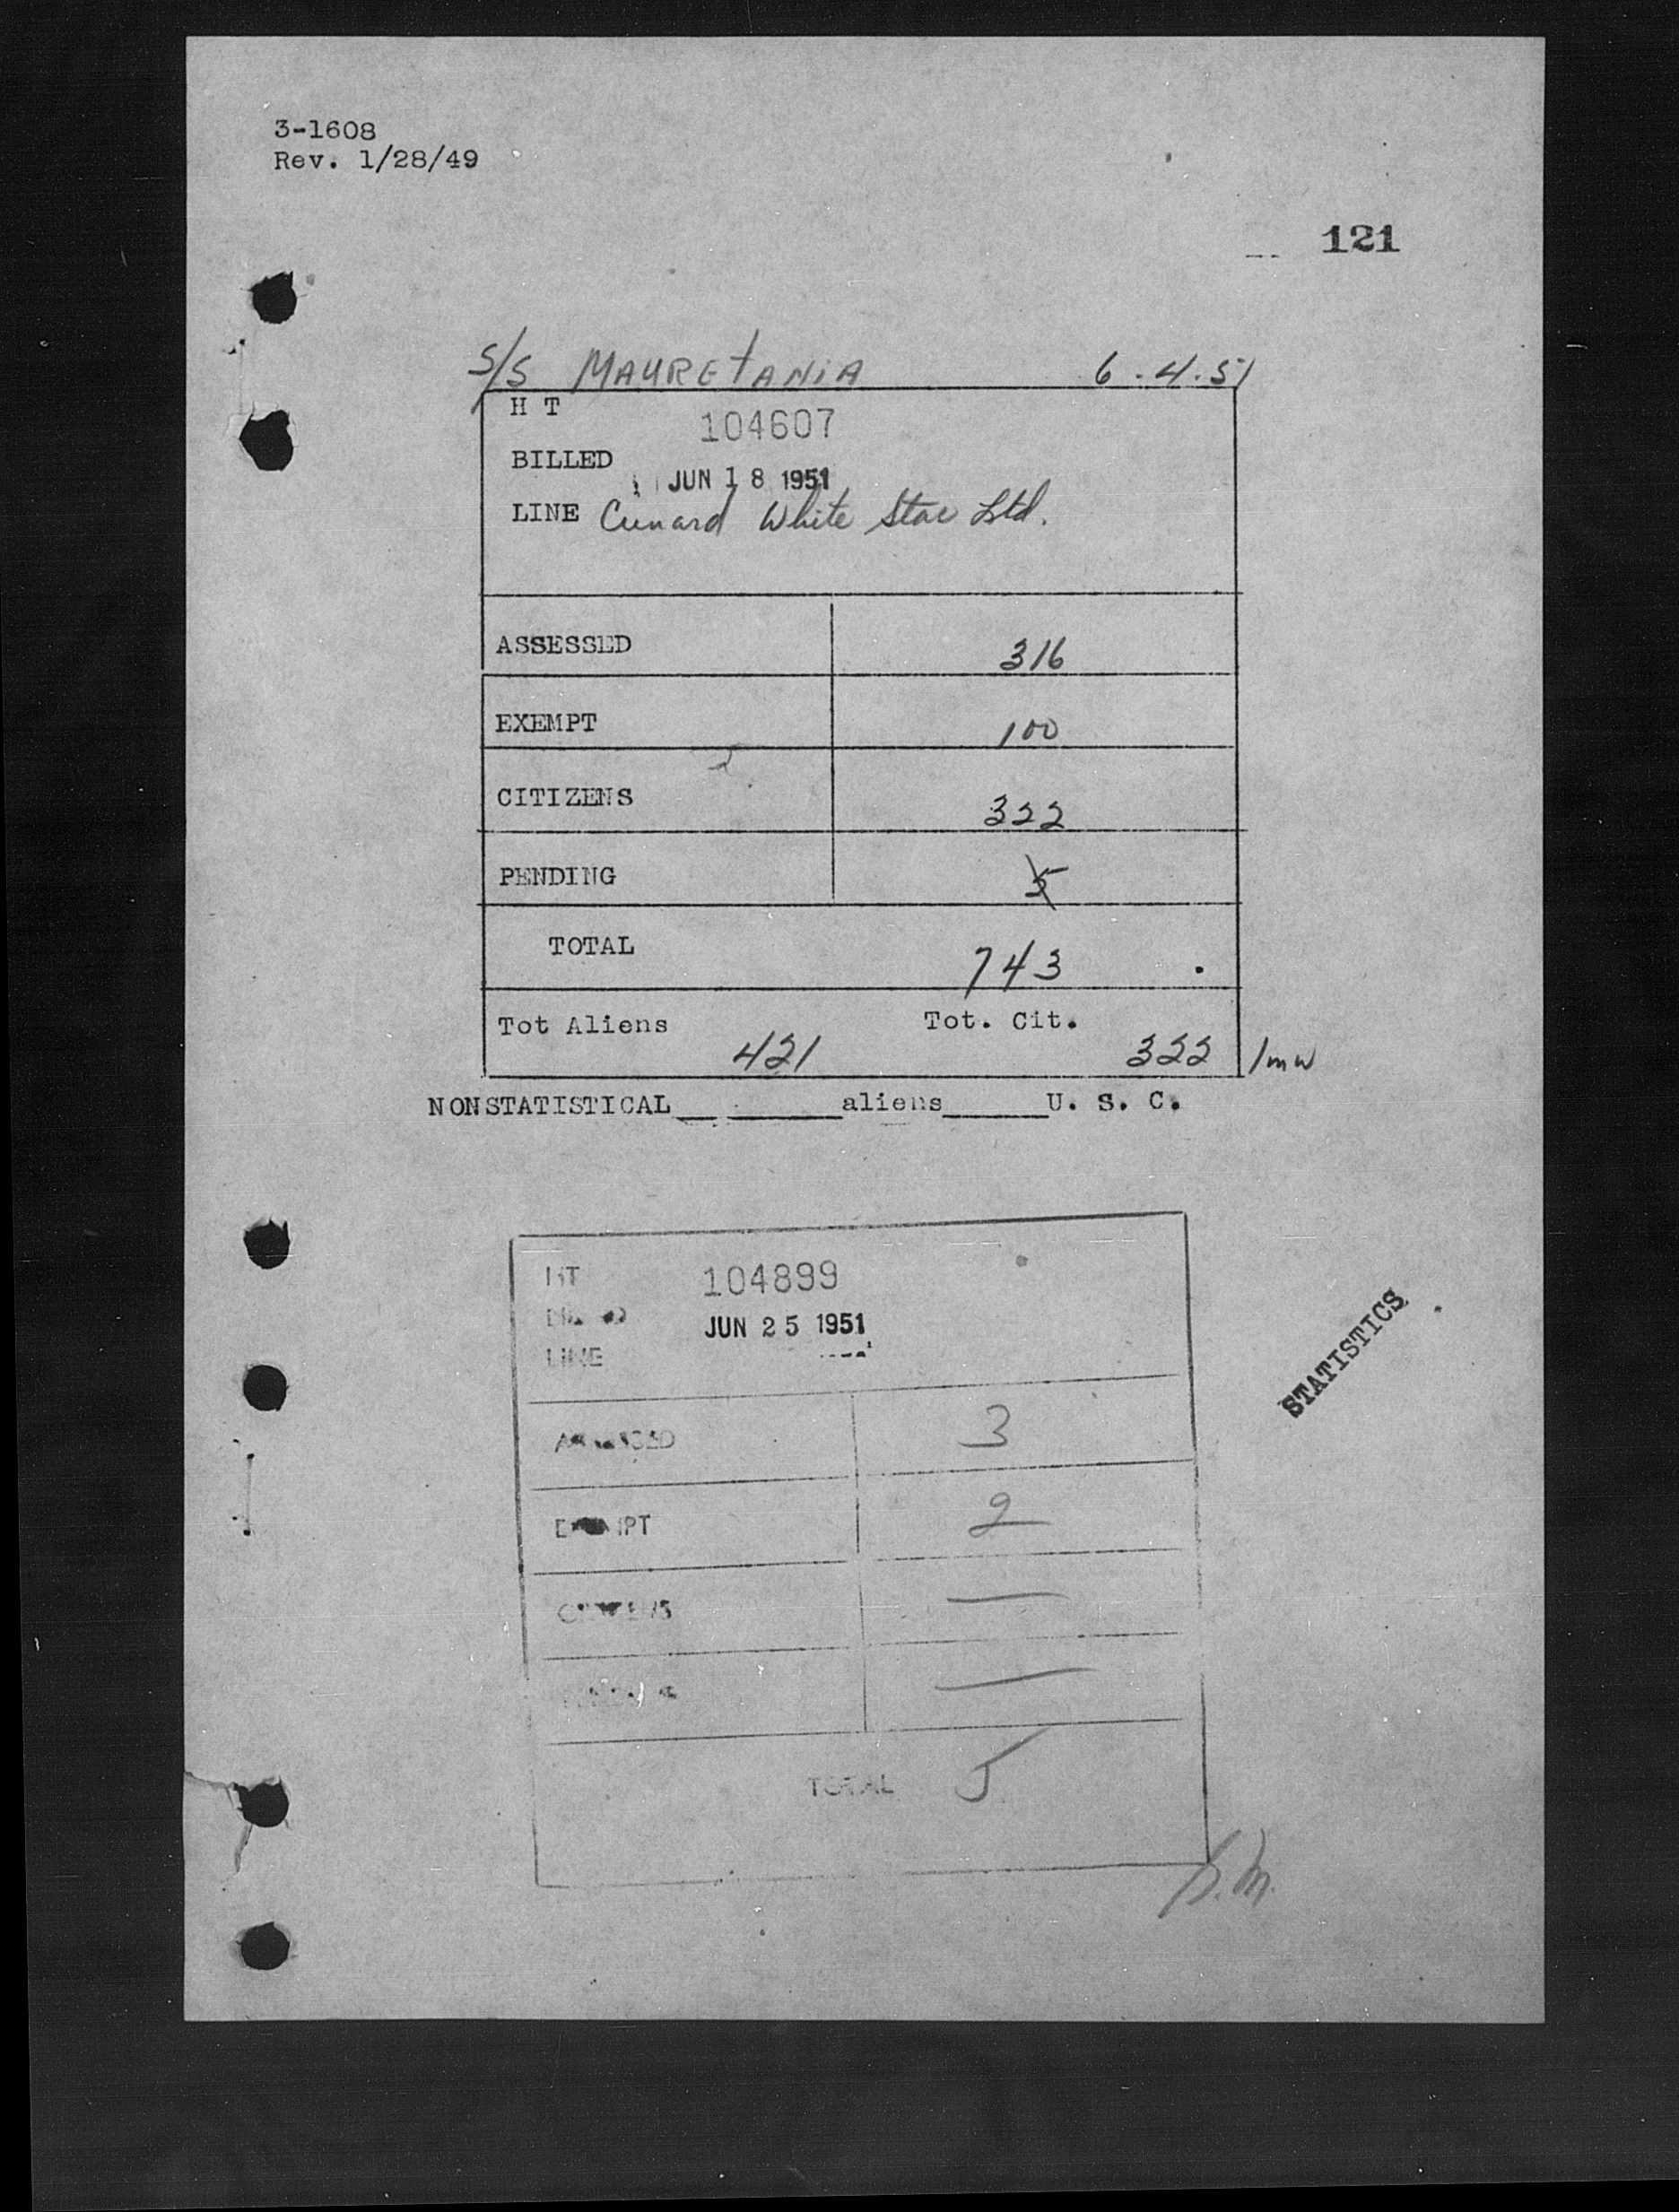 3-1608
Rev. 1/28/49
121
S/S MAURETANIA 6.4.51
H T 104607
BILLED
JUN 18 1951
LINE Cunard White Star Ltd.
ASSESSED 316
EXEMPT 100
CITIZENS 322
PENDING 5
TOTAL 743
Tot Aliens 421 Tot. Cit. 322 /mw
NONSTATISTICAL aliens U. S. C.
HT 104899
JUN 25 1951
LINE
STATISTICS
3
EXEMPT 2
CITIZENS —
—
TOTAL 5